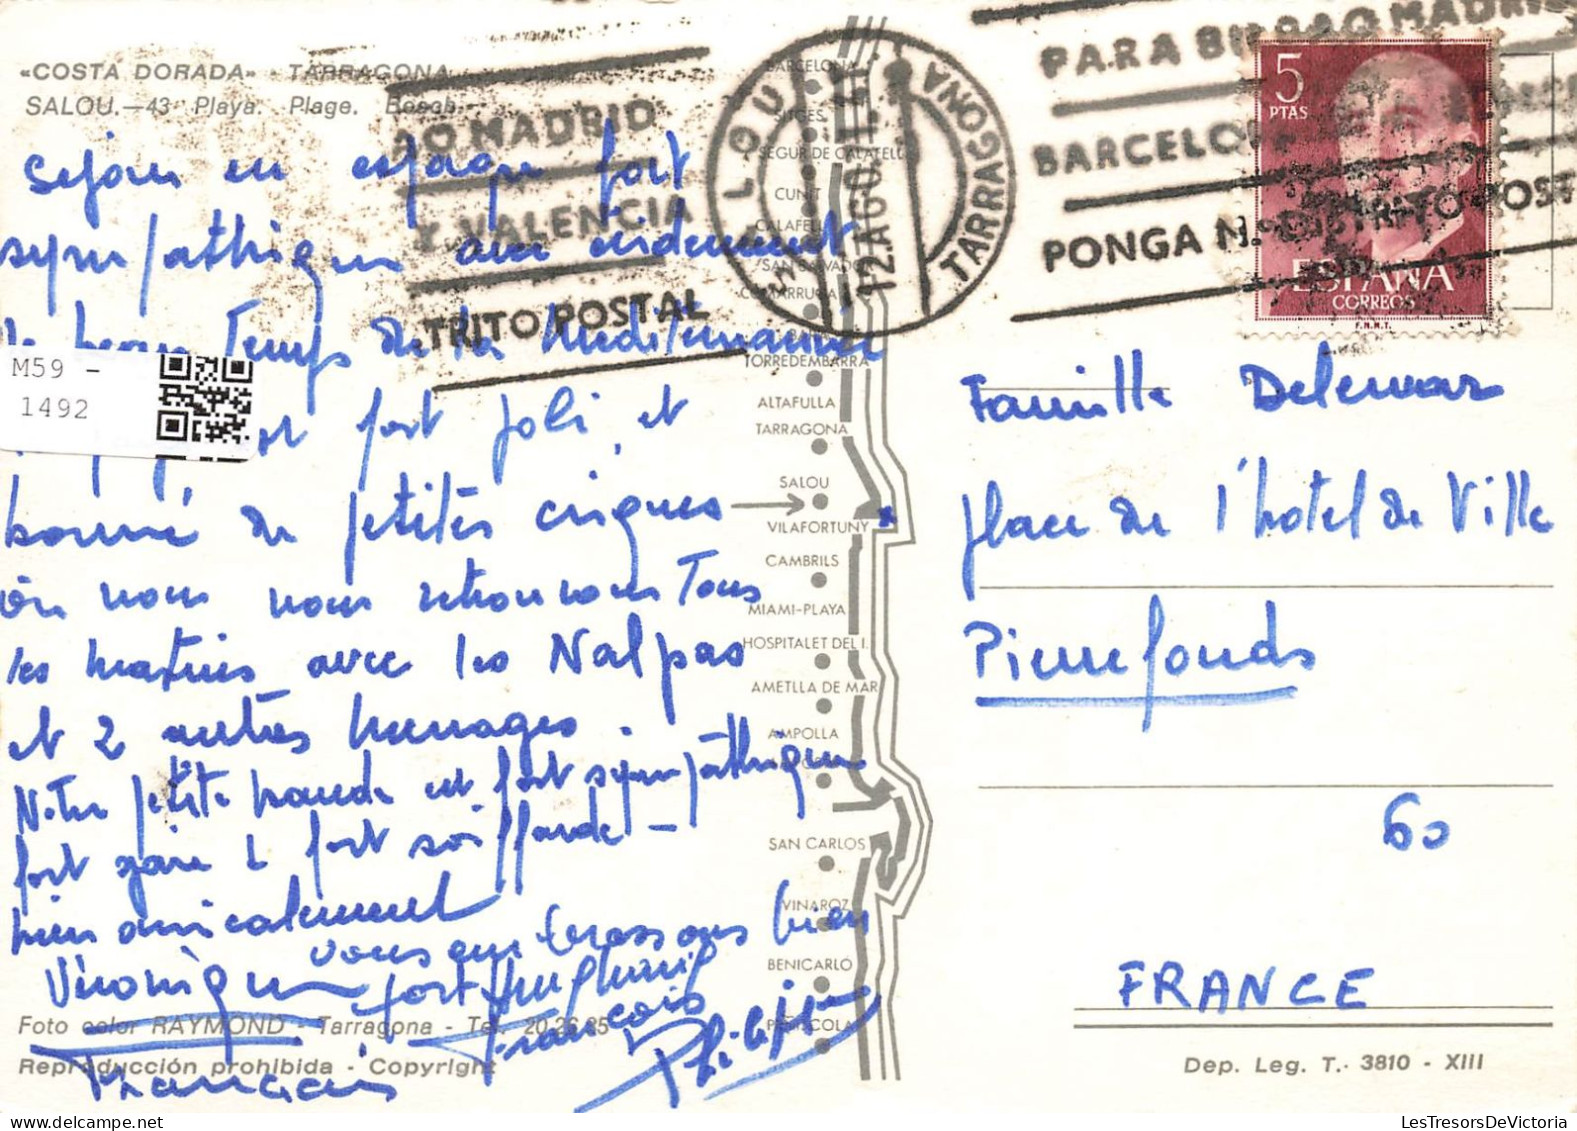 «COSTA DORADA» - TARRAGONA
SALOU.—43 Playa. Plage. Beach.
Séjour en espagne fort
sympathique avec évidemment
le beau Temps de la Méditerranée
est fort joli, et
borné de petites criques
où nous nous retrouvons Tous
les matins avec les Nalpas
et 2 autres ménages.
Notre petite bande est fort sympathique
fort gaie & fort
bien amicalement
vous embrassons bien
Véronique fort
François
Philippe
François
Foto color RAYMOND - Tarragona - Tel. 20.26.85
Reproducción prohibida - Copyright
M59 -
1492
O.MADRID
Y VALENCIA
TRITO POSTAL
SALOU
TARRAGONA
12.AGO.71
PARA BILBAO MADRID
BARCELONA
PONGA N.º DISTRITO POST
5
PTAS
ESPAÑA
CORREOS
F.N.M.T.
BARCELONA
SITGES
SEGUR DE CALAFELL
CUNIT
CALAFELL
SAN SALVADOR
COMARRUGA
TORREDEMBARRA
ALTAFULLA
TARRAGONA
SALOU
VILAFORTUNY
CAMBRILS
MIAMI-PLAYA
HOSPITALET DEL I.
AMETLLA DE MAR
AMPOLLA
SAN CARLOS
VINAROZ
BENICARLÓ
PEÑISCOLA
Famille Delemar
place de l'hotel de Ville
Pierrefonds
60
FRANCE
Dep. Leg. T.- 3810 - XIII
LesTresorsDeVictoria.com